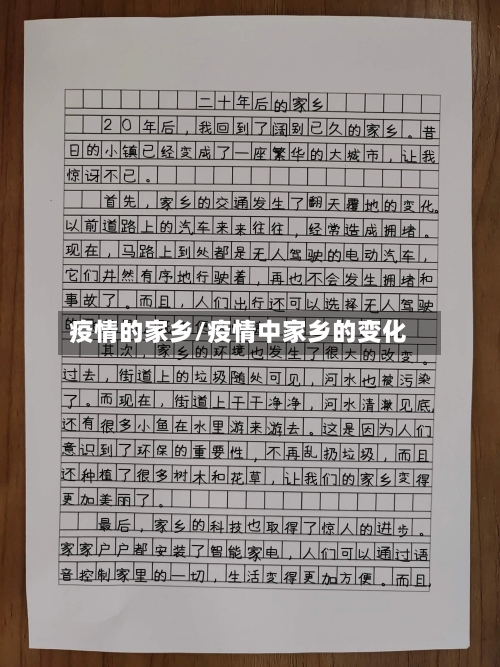 二十年后的家乡
20年后，我回到了阔别已久的家乡。昔
日的小镇已经变成了一座繁华的大城市，让我
惊讶不已。
首先，家乡的交通发生了翻天覆地的变化。
以前道路上的汽车来来往往，经常造成拥堵。
现在，马路上到处都是无人驾驶的电动汽车，
它们井然有序地行驶着，再也不会发生拥堵和
事故了。而且，人们出行还可以选择无人驾驶
疫情的家乡/疫情中家乡的变化
其次，家乡的环境也发生了很大的改变。
过去，街道上的垃圾随处可见，河水也被污染
了。而现在，街道上干干净净，河水清澈见底，
还有很多小鱼在水里游来游去。这是因为人们
意识到了环保的重要性，不再乱扔垃圾，而且
还种植了很多树木和花草，让我们的家乡变得
更加美丽了。
最后，家乡的科技也取得了惊人的进步。
家家户户都安装了智能家电，人们可以通过语
音控制家里的一切，生活变得更加方便。而且，